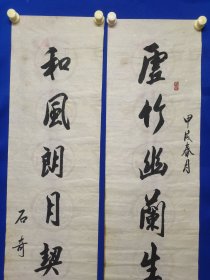 甲辰春月
虚竹幽蘭生
和風朗月契
石奇